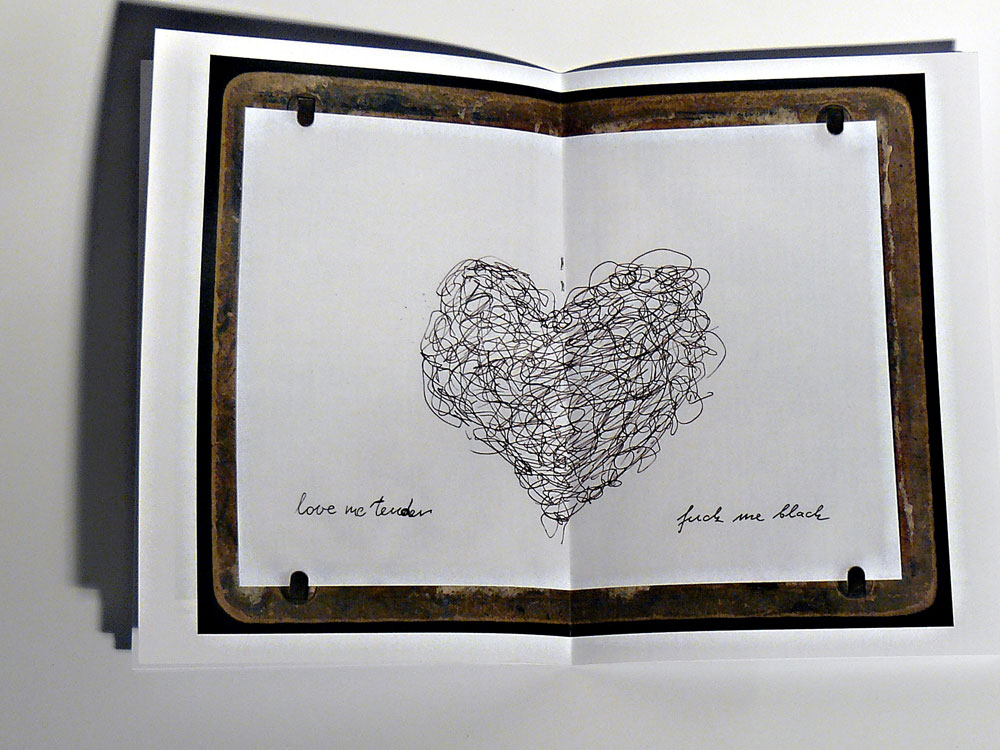 love me tender
fuck me black